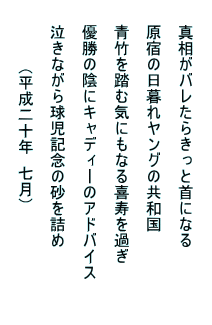 真相がバレたらきっと首になる
原宿の日暮れヤングの共和国
青竹を踏む気にもなる喜寿を過ぎ
優勝の陰にキャディーのアドバイス
泣きながら球児記念の砂を詰め
（平成二十年 七月）